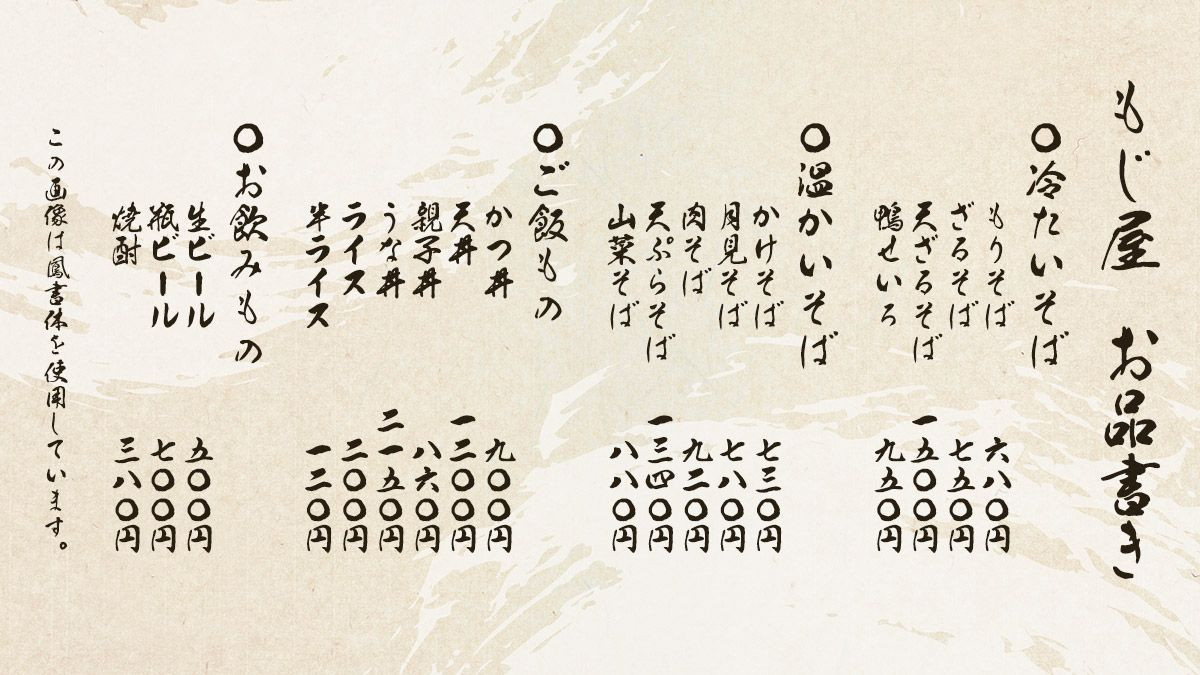 もじ屋　お品書き
〇冷たいそば
もりそば　六八〇円
ざるそば　七五〇円
天ざるそば　一五〇〇円
鴨せいろ　九五〇円
〇温かいそば
かけそば　七三〇円
月見そば　七八〇円
肉そば　九二〇円
天ぷらそば　一三四〇円
山菜そば　八八〇円
〇ご飯もの
かつ丼　九〇〇円
天丼　一二〇〇円
親子丼　八六〇円
うな丼　二一五〇円
ライス　二〇〇円
半ライス　一二〇円
〇お飲みもの
生ビール　五〇〇円
瓶ビール　七〇〇円
焼酎　三八〇円
この画像は鳳書体を使用しています。